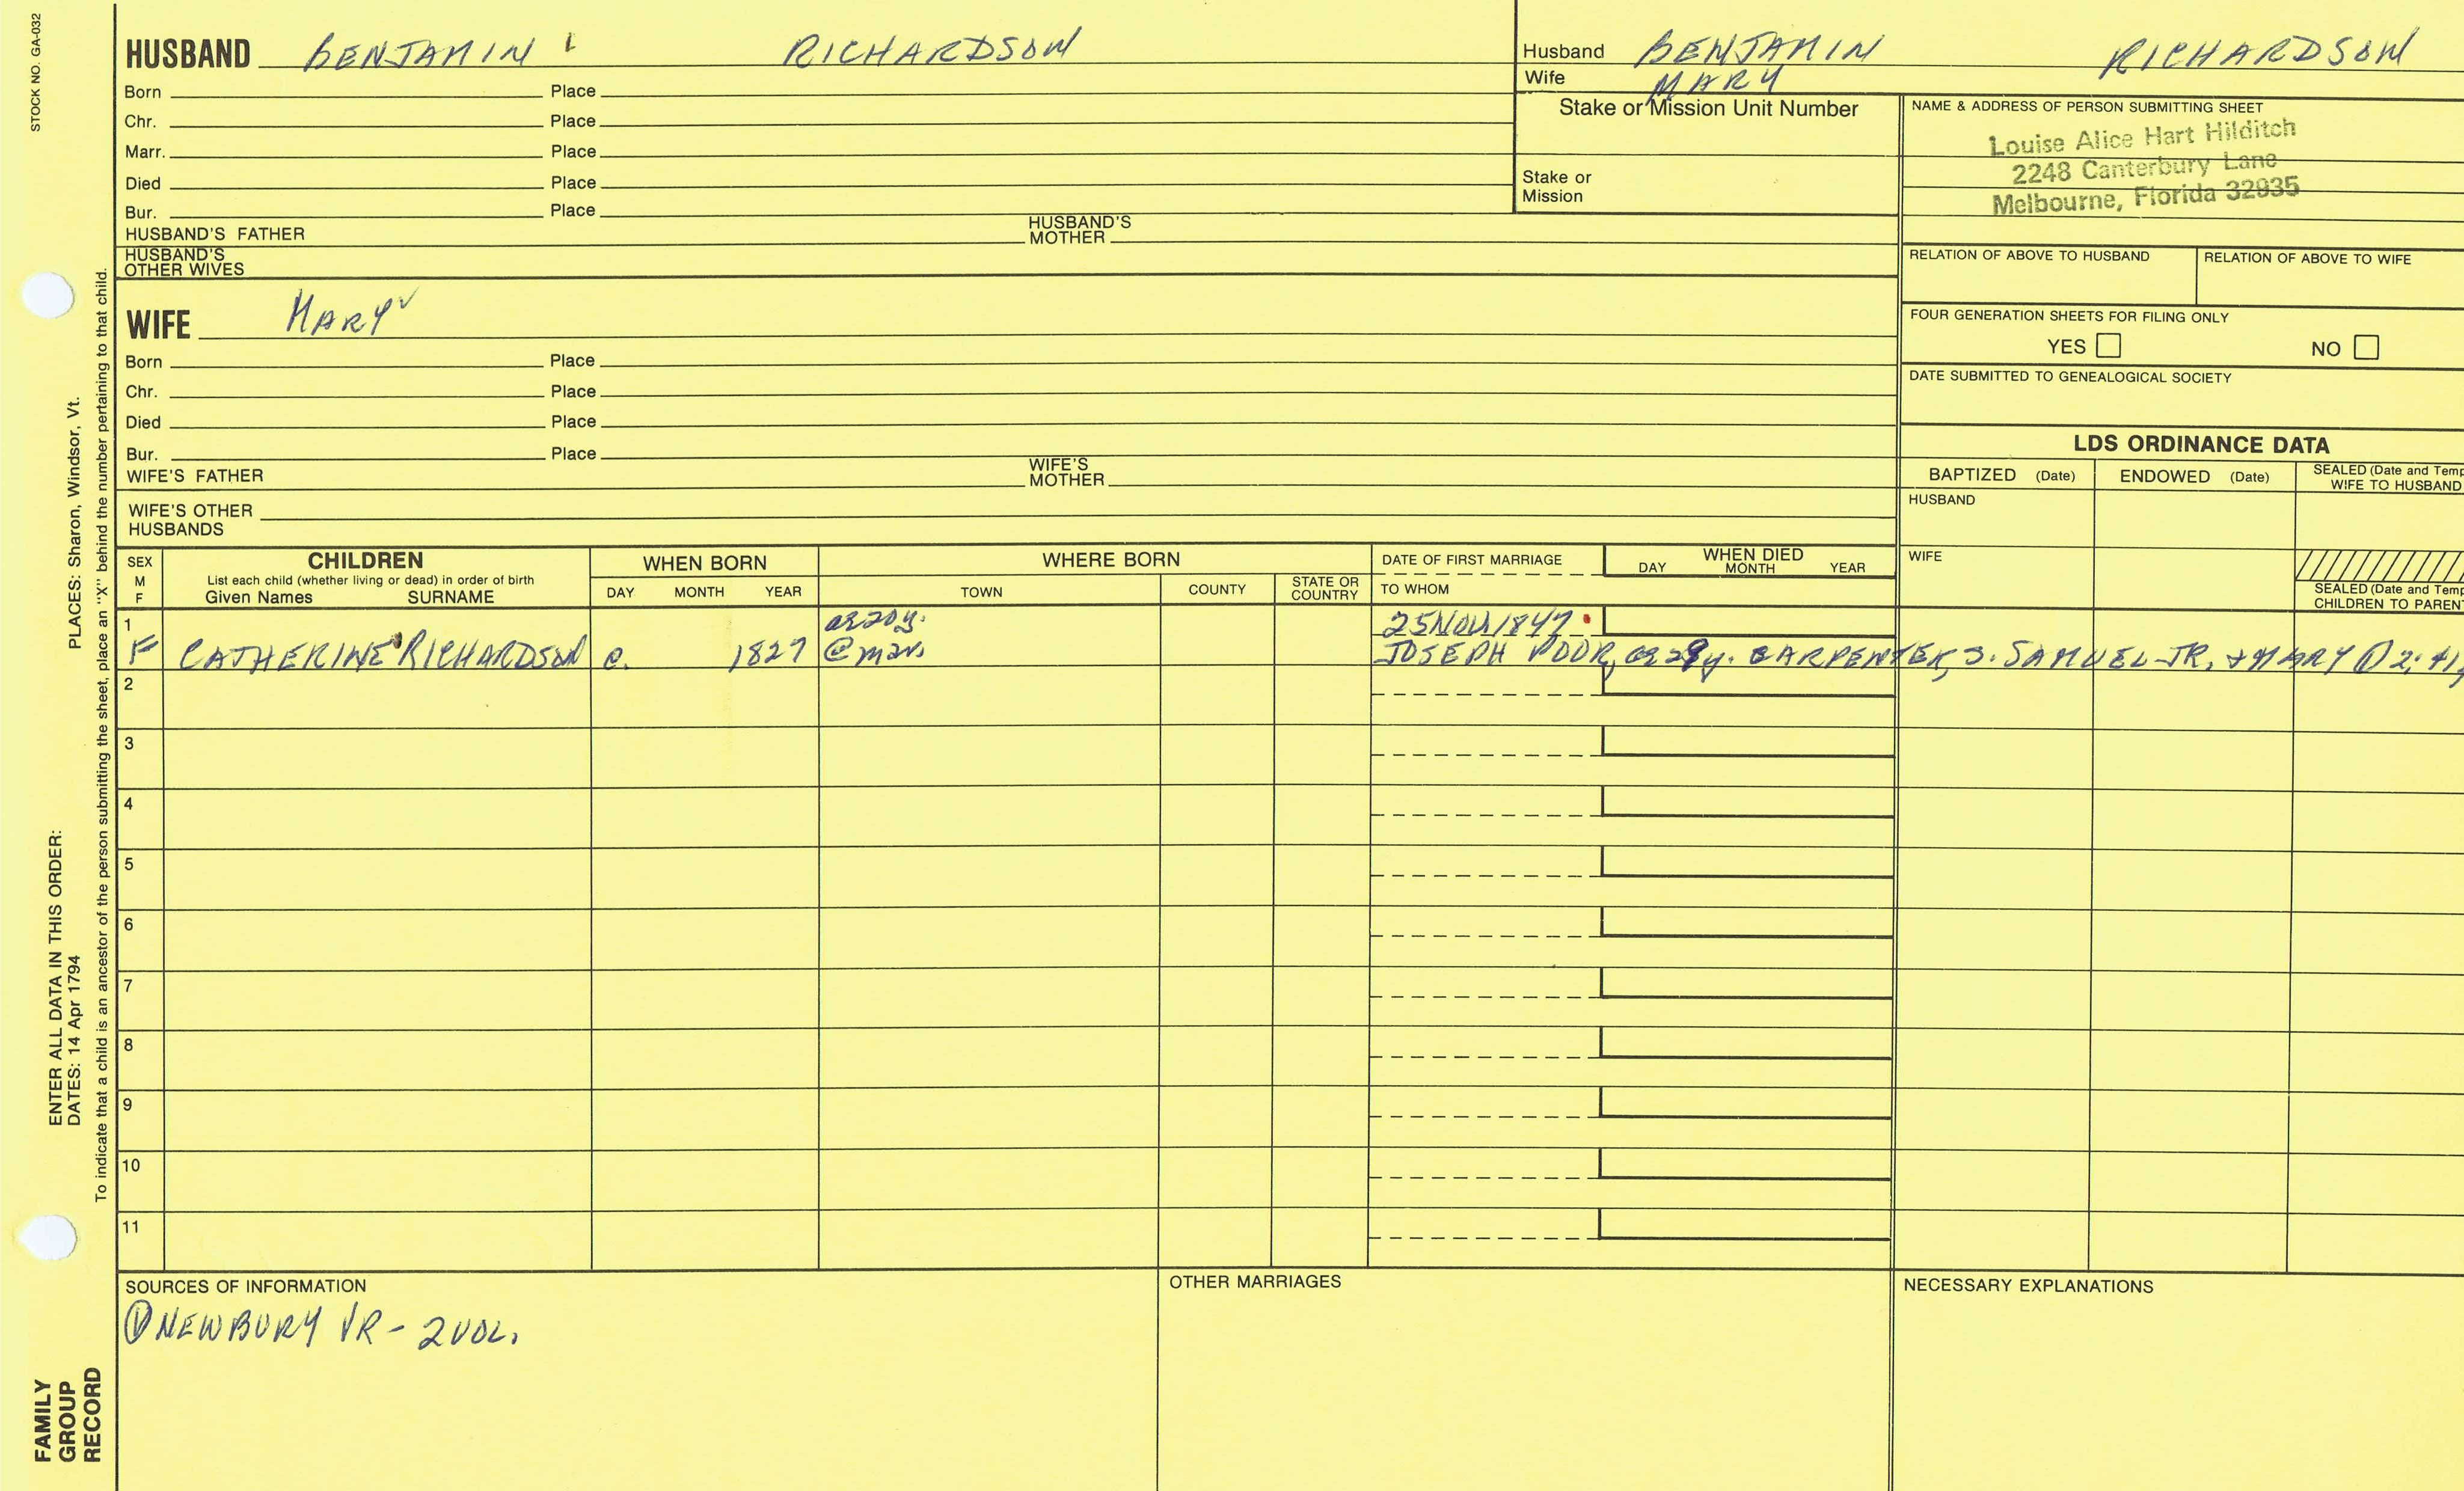 STOCK NO. GA-032
HUSBAND BENJAMIN RICHARDSON
Born Place
Chr. Place
Marr. Place
Died Place
Bur. Place
HUSBAND'S FATHER HUSBAND'S MOTHER
HUSBAND'S OTHER WIVES
Husband BENJAMIN RICHARDSON
Wife MARY
Stake or Mission Unit Number
Stake or Mission
NAME & ADDRESS OF PERSON SUBMITTING SHEET
Louise Alice Hart Hilditch
2248 Canterbury Lane
Melbourne, Florida 32935
RELATION OF ABOVE TO HUSBAND RELATION OF ABOVE TO WIFE
FOUR GENERATION SHEETS FOR FILING ONLY
YES NO
DATE SUBMITTED TO GENEALOGICAL SOCIETY
WIFE MARY
Born Place
Chr. Place
Died Place
Bur. Place
WIFE'S FATHER WIFE'S MOTHER
WIFE'S OTHER HUSBANDS
LDS ORDINANCE DATA
BAPTIZED (Date) ENDOWED (Date) SEALED (Date and Temp
WIFE TO HUSBAND
HUSBAND
WIFE
SEALED (Date and Temp
CHILDREN TO PAREN
SEX M F
CHILDREN
List each child (whether living or dead) in order of birth
Given Names SURNAME
WHEN BORN
DAY MONTH YEAR
WHERE BORN
TOWN COUNTY STATE OR COUNTRY
DATE OF FIRST MARRIAGE
TO WHOM
WHEN DIED
DAY MONTH YEAR
1 ae 20y. 25 NOV 1847
F CATHERINE RICHARDSON c. 1827 @ mar. JOSEPH POOR, ae 29y. CARPENTER, S. SAMUEL JR. + MARY ① 2:41,
2
3
4
5
6
7
8
9
10
11
SOURCES OF INFORMATION
① NEWBURY VR - 2 VOL.
OTHER MARRIAGES
NECESSARY EXPLANATIONS
ENTER ALL DATA IN THIS ORDER:
DATES: 14 Apr 1794 PLACES: Sharon, Windsor, Vt.
To indicate that a child is an ancestor of the person submitting the sheet, place an "X" behind the number pertaining to that child.
FAMILY
GROUP
RECORD